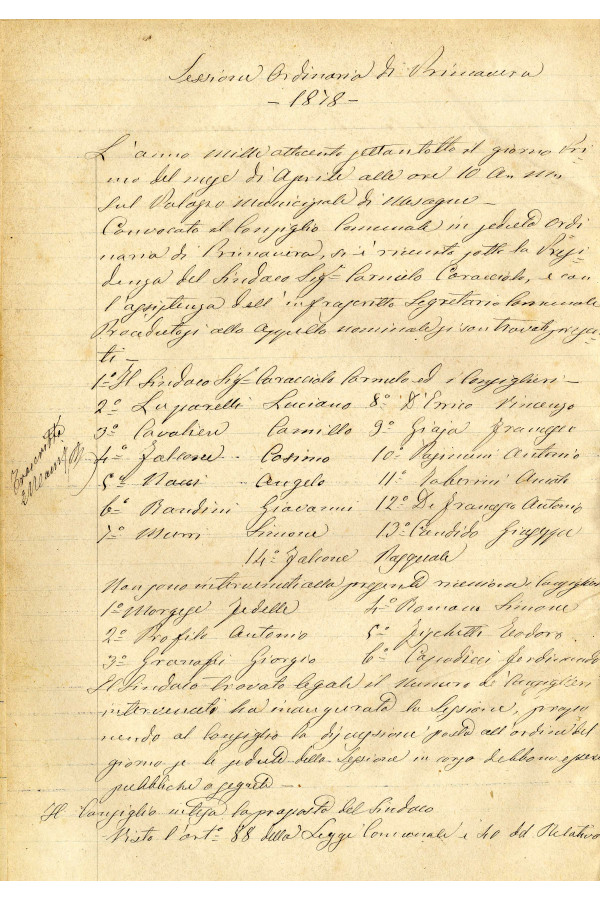 Sessione Ordinaria di Primavera
- 1878 -
L'anno mille ottocento settantotto il giorno Pri-
mo del mese di Aprile alle ore 10 An. M.
Sul Palazzo Municipale di Mesagne -
Convocato il Consiglio Comunale in seduta ordi
naria di Primavera, si è riunito sotto la Presi
denza del Sindaco Sigr Carmelo Caracciolo, e con
l'assistenza dell'infrascritto Segretario Comunale
Procedutosi allo Appello nominale si son trovati presen
ti -
1º Il Sindaco Sigr Caracciolo Carmelo ed i Consiglieri -
2º Luparelli Luciano 8º D'Errico Vincenzo
3º Cavaliere Camillo 9º Giaja Francesco
4º Falcone Cosimo 10º Antonio
5º Nacci Angelo 11º
6º Bandini Giovanni 12º De Francesco Antonio
7º Murri Simone 13º Candido Giuseppe
14º Falcone Pasquale
Non sono intervenuti alla presente riunione i Consiglieri
1º Morgese Fedele 4º Romano Simone
2º Profilo Antonio 5º Teodoro
3º Granafei Giorgio 6º Capodieci Ferdinando
Il Sindaco trovato legale il numero de' Consiglieri
intervenuti ha inaugurata la Sessione, propo
nendo al Consiglio la discussione posta all'ordine del
giorno se le sedute della Sessione in corso debbono essere
pubbliche o segrete -
Il Consiglio intesa la proposta del Sindaco
Visto l'artº 88 della Legge Comunale e 40 del Relativo